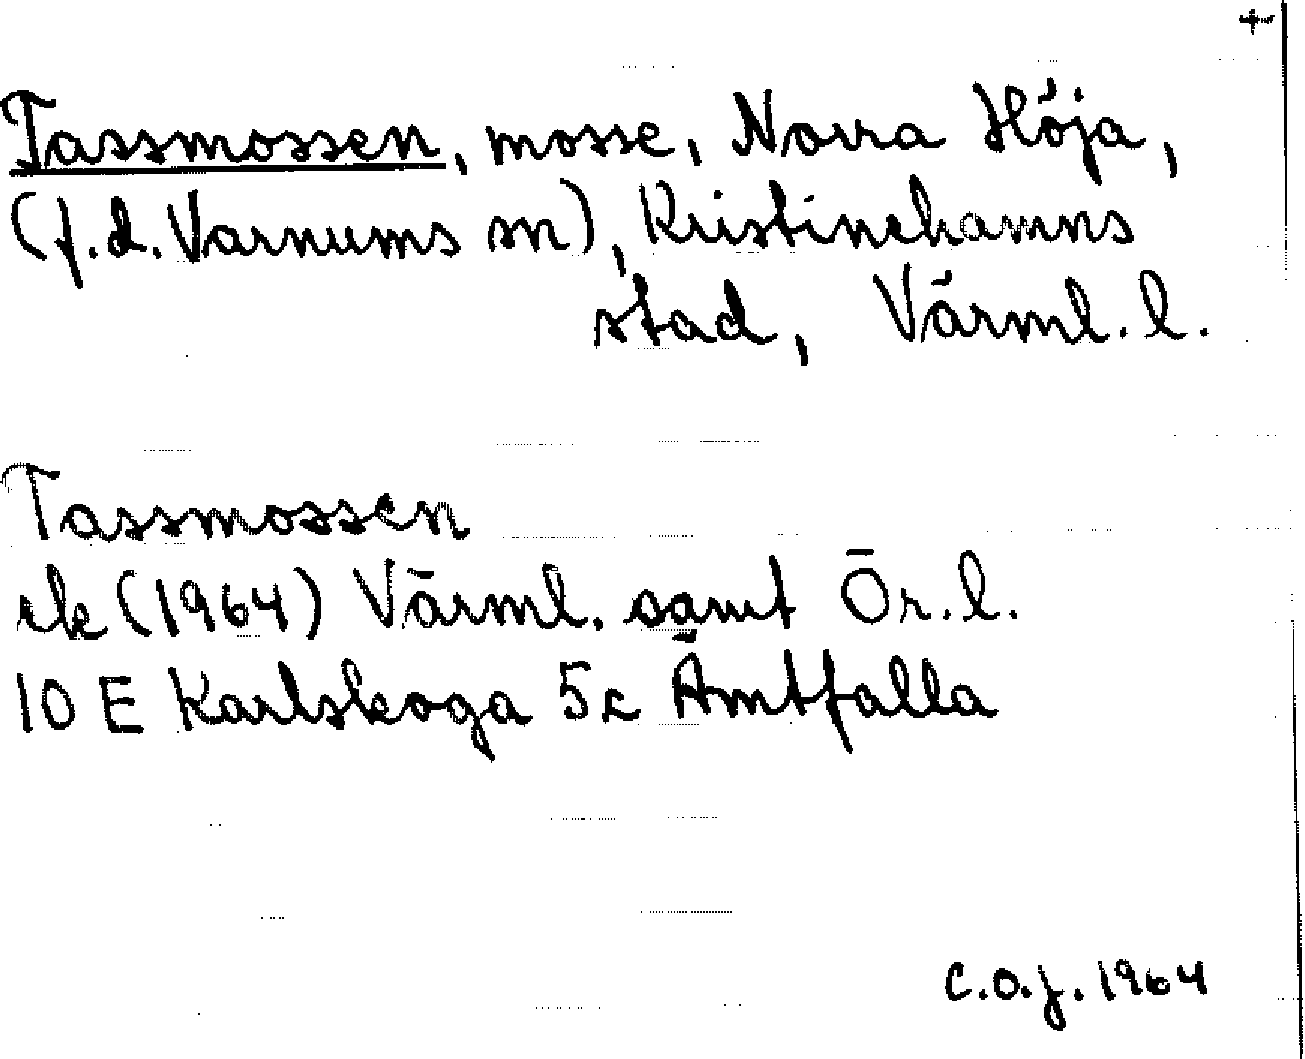 +
Tassmossen, mosse, Norra Höja,
(f.d. Varnums sn), Kristinehamns
stad, Värml. l.
Tassmossen
ek (1964) Värml. samt Ör. l.
10 E Karlskoga 5c Ämtfalla
C.O.J. 1964